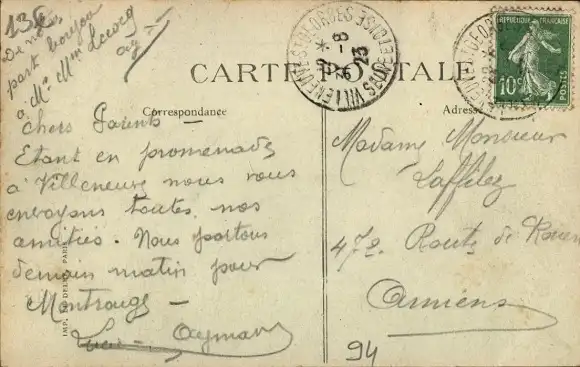 13€
De notre
part bonjour
à Mr Mme Leveeg
CARTE POSTALE
Correspondance
Adresse
RÉPUBLIQUE FRANÇAISE
10c
POSTES
VILLENEUVE ST GEORGES
SEINE ET OISE
8
23
chers Parents —
Etant en promenade
à Villeneuve nous vous
envoyons toutes nos
amitiés. Nous partons
demain matin pour
Montrouge —
Aymar
Madame Monsieur
Laffilez
472. Route de Rouen
Amiens
94
IMP. EDELEY, PARIS